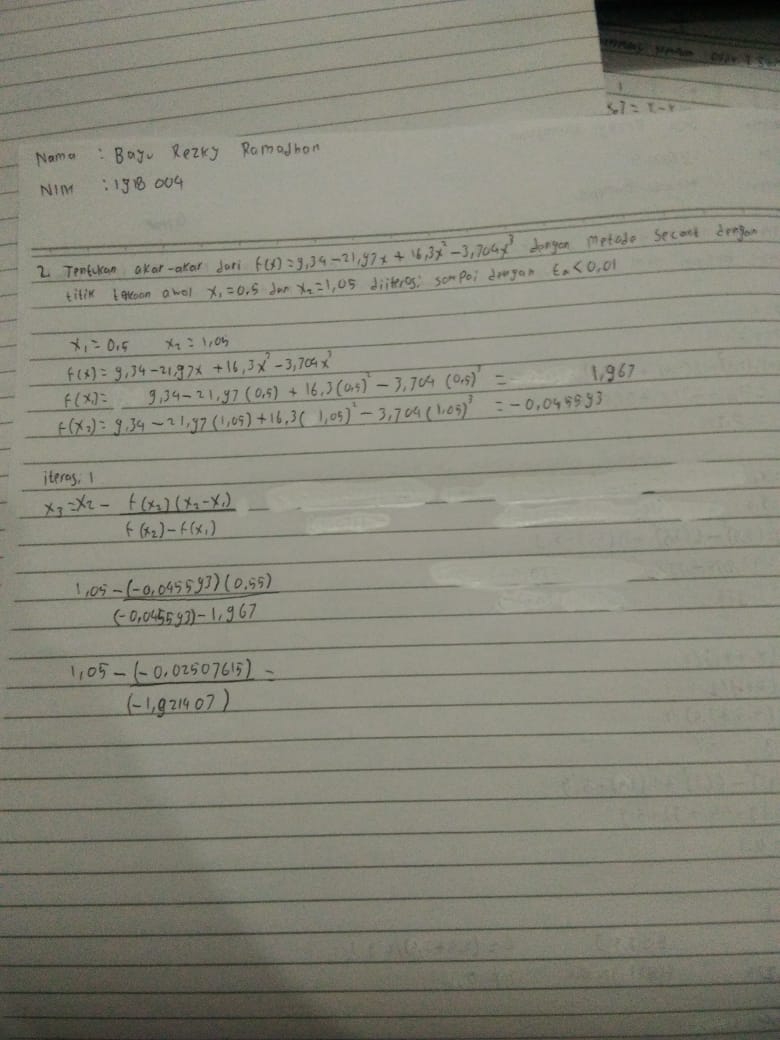 Nama : Bayu Rezky Ramadhan
NIM : 19B 004
2. Tentukan akar-akar dari f(x) = 9,34 − 21,97x + 16,3x² − 3,704x³ dengan metode secant dengan
titik tebakan awal x₁ = 0.5 dan x₂ = 1,05 diiterasi sampai dengan εa < 0,01
x₁ = 0.5 x₂ = 1,05
f(x) = 9,34 − 21,97x + 16,3x² − 3,704x³
f(x₁) = 9,34 − 21,97 (0,5) + 16,3 (0,5)² − 3,704 (0,5)³ = 1,967
f(x₂) = 9,34 − 21,97 (1,05) + 16,3 (1,05)² − 3,704 (1,05)³ = −0,045593
iterasi 1
x₃ = x₂ − f(x₂)(x₂−x₁)
f(x₂) − f(x₁)
1,05 − (−0,045593)(0,55)
(−0,045593) − 1,967
1,05 − (−0.02507615) =
(−1,921407)